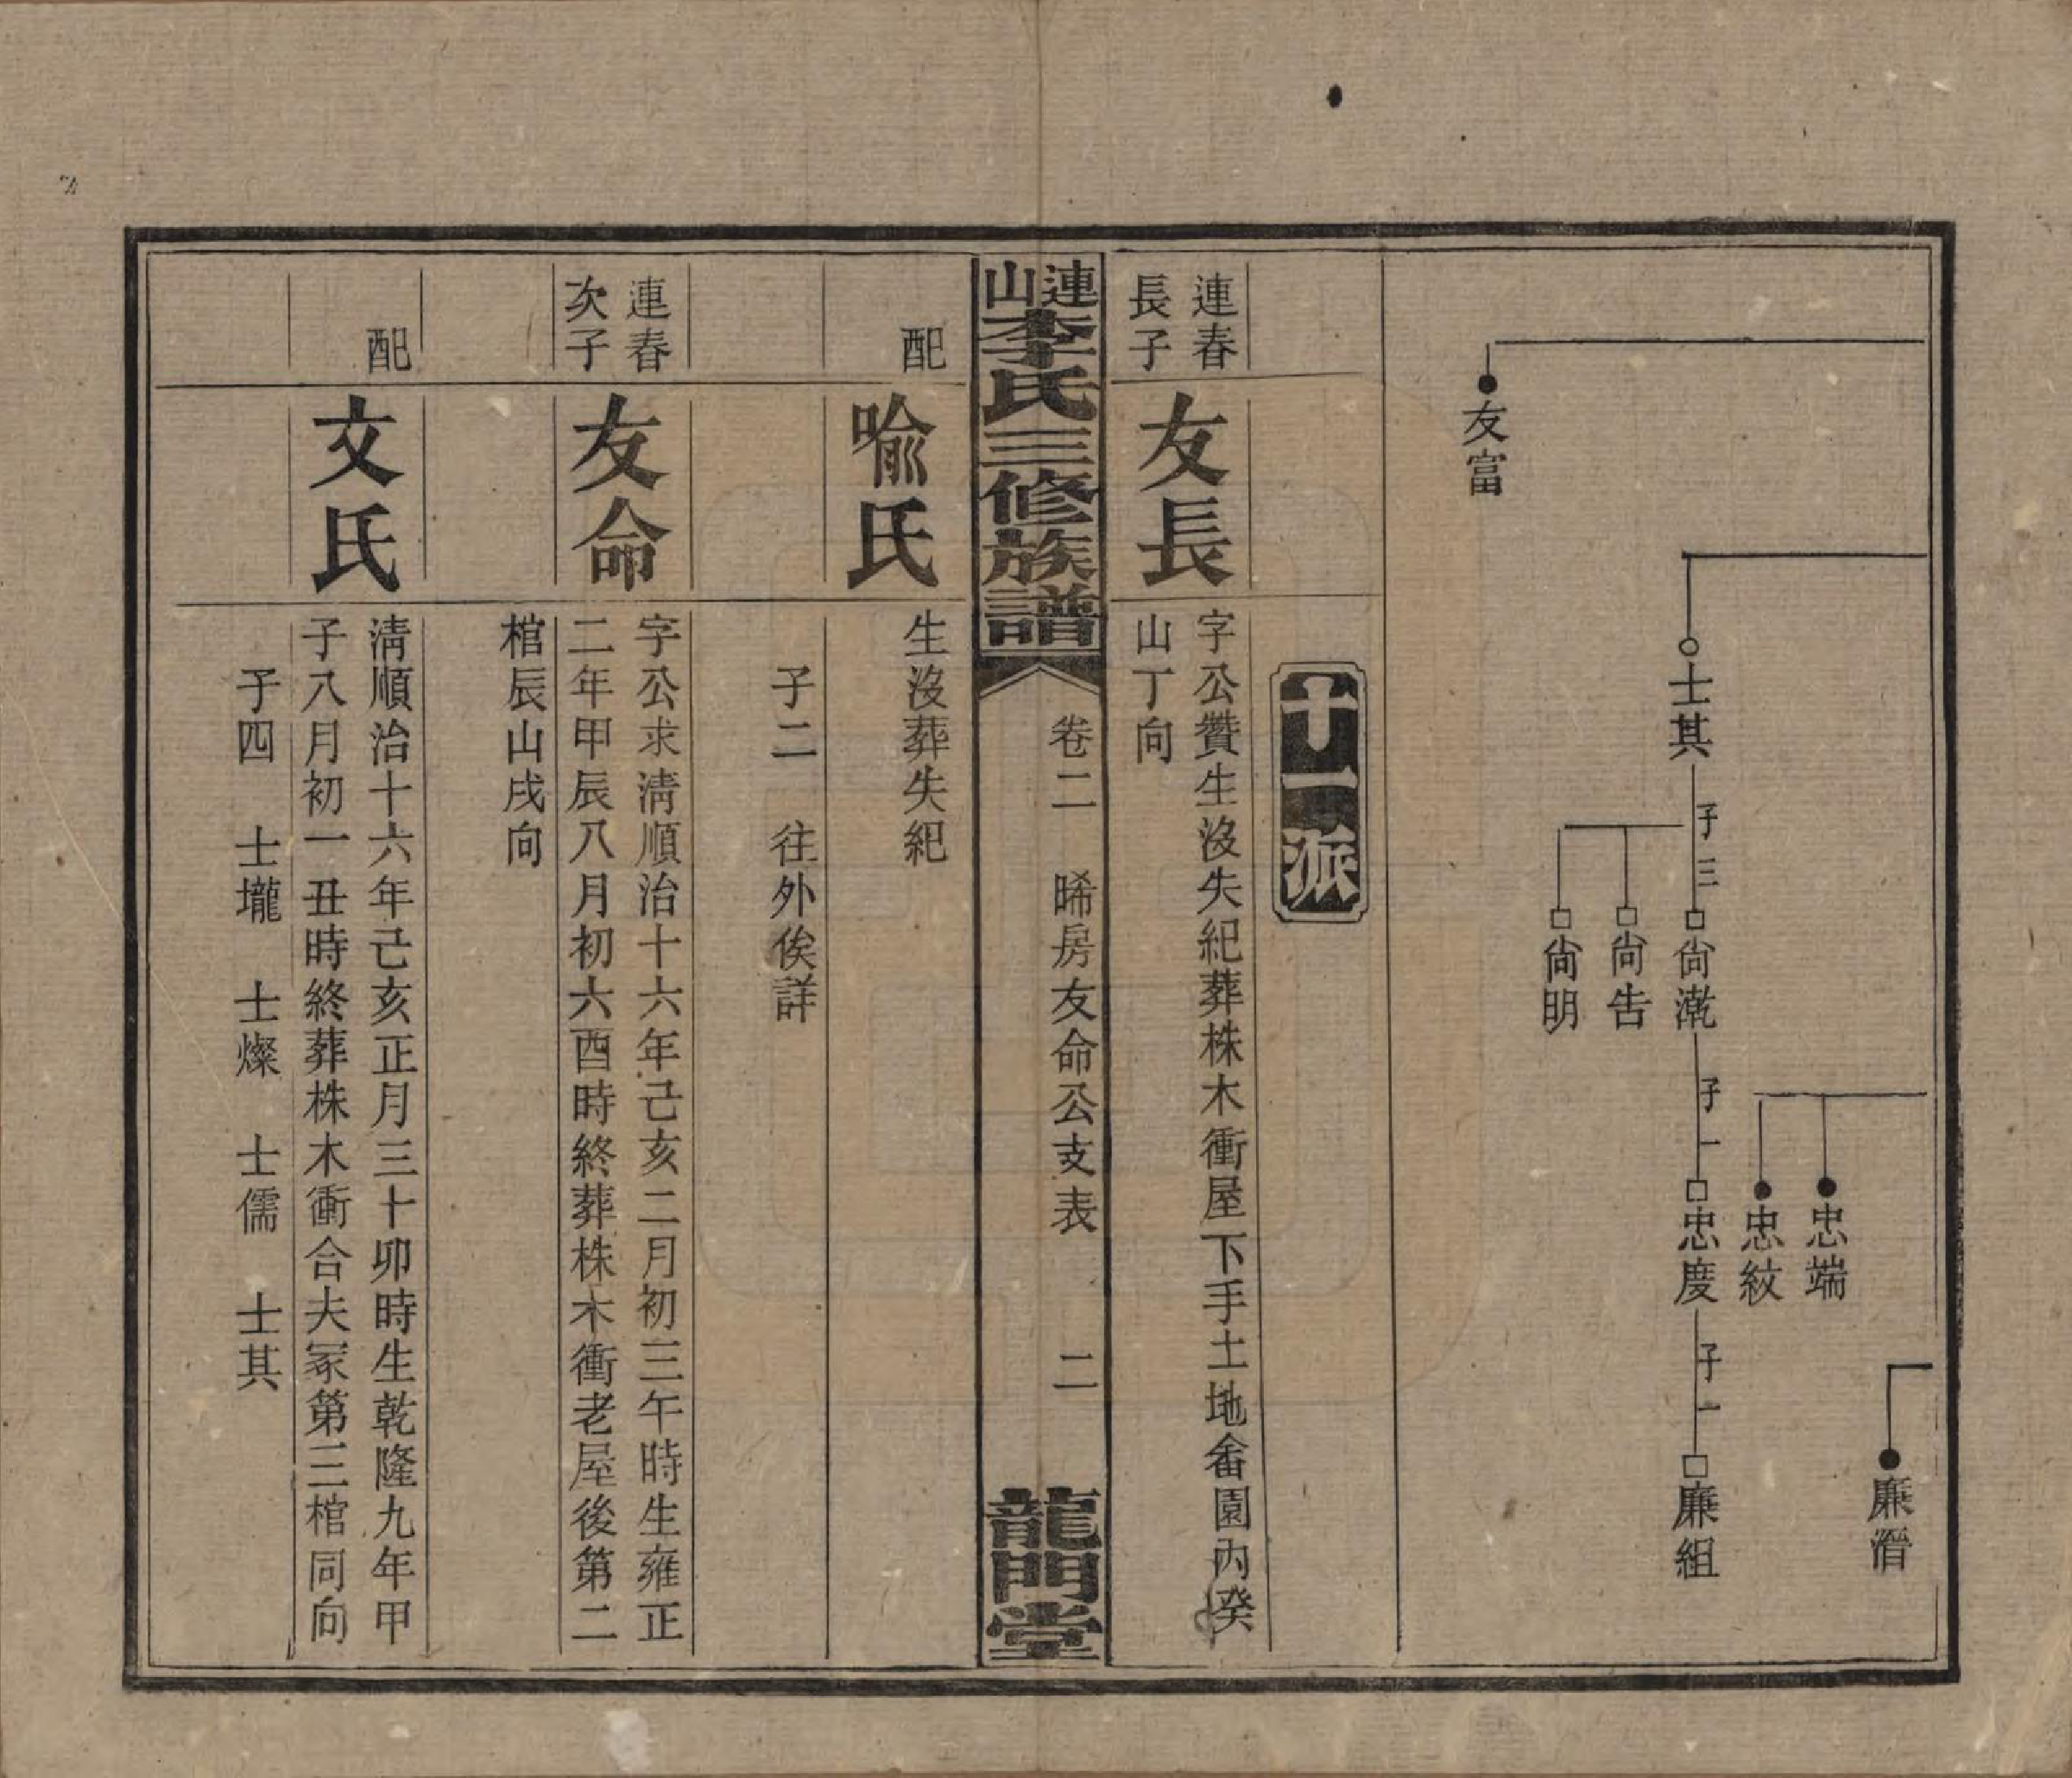 廉潛
忠端
忠紋
士其
子三
尙漧
子一
忠度
子一
廉組
尙告
尙明
友富
十一派
連春
長子
友長
字公贊生沒失紀葬株木衝屋下手土地畬園內癸
山丁向
連山李氏三修族譜
卷二 晞房友命公支表 二
龍門堂
配
喻氏
生沒葬失紀
子二 往外俟詳
連春
次子
友命
字公求淸順治十六年己亥二月初三午時生雍正
二年甲辰八月初六酉時終葬株木衝老屋後第二
棺辰山戌向
配
文氏
淸順治十六年己亥正月三十卯時生乾隆九年甲
子八月初一丑時終葬株木衝合夫冢第三棺同向
子四 士壠 士燦 士儒 士其